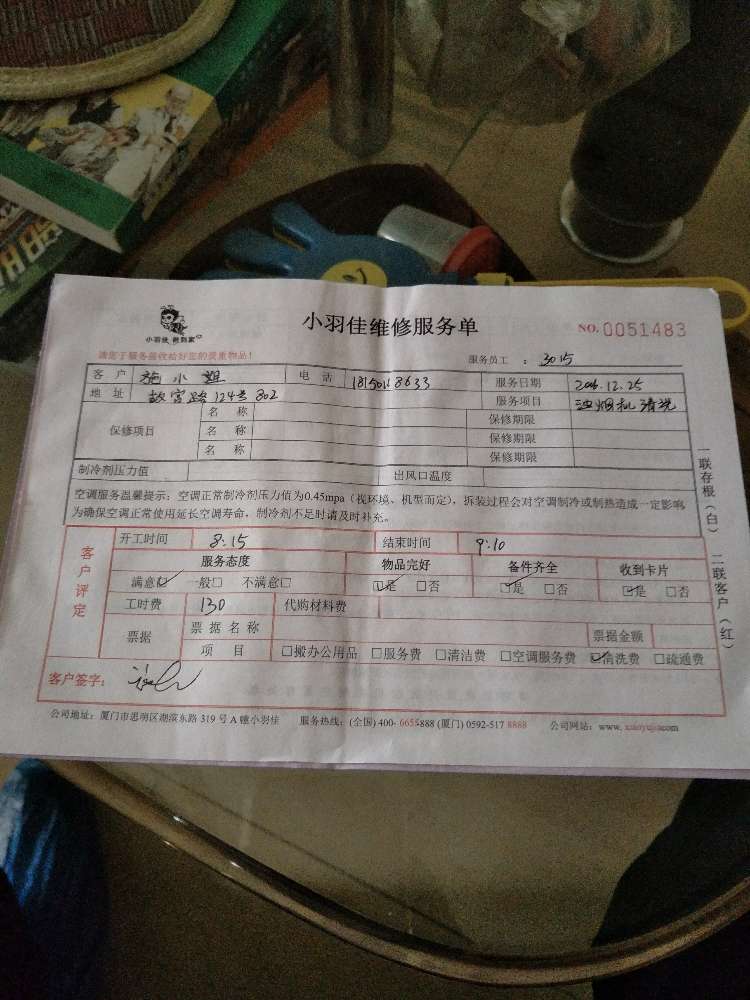 小羽佳 做到家
小羽佳维修服务单
NO. 0051483
请您于服务前收拾好您的贵重物品!
服务员工 : 3015
客户 施小姐 电话 服务日期 12.25
地址 故宫路124号802 服务项目 油烟机清洗
保修项目 名称 保修期限
名称 保修期限
名称 保修期限
制冷剂压力值 出风口温度
空调服务温馨提示:空调正常制冷剂压力值为0.45mpa(视环境、机型而定),拆装过程会对空调制冷或制热造成一定影响
为确保空调正常使用延长空调寿命,制冷剂不足时请及时补充。
一联存根(白) 二联客户(红)
客户评定
开工时间 8:15 结束时间 9:10
服务态度 物品完好 备件齐全 收到卡片
满意☑ 一般□ 不满意□ ☑是 □否 ☑是 □否 ☑是 □否
工时费 130 代购材料费
票据 票据名称 票据金额
项目 □搬办公用品 □服务费 □清洁费 □空调服务费 ☑清洗费 □疏通费
客户签字:
公司地址:厦门市思明区湖滨东路 319 号 A 幢小羽佳 服务热线:(全国) 400- 6655888 (厦门) 0592-517 8888 公司网站:www. xiaoyujia.com